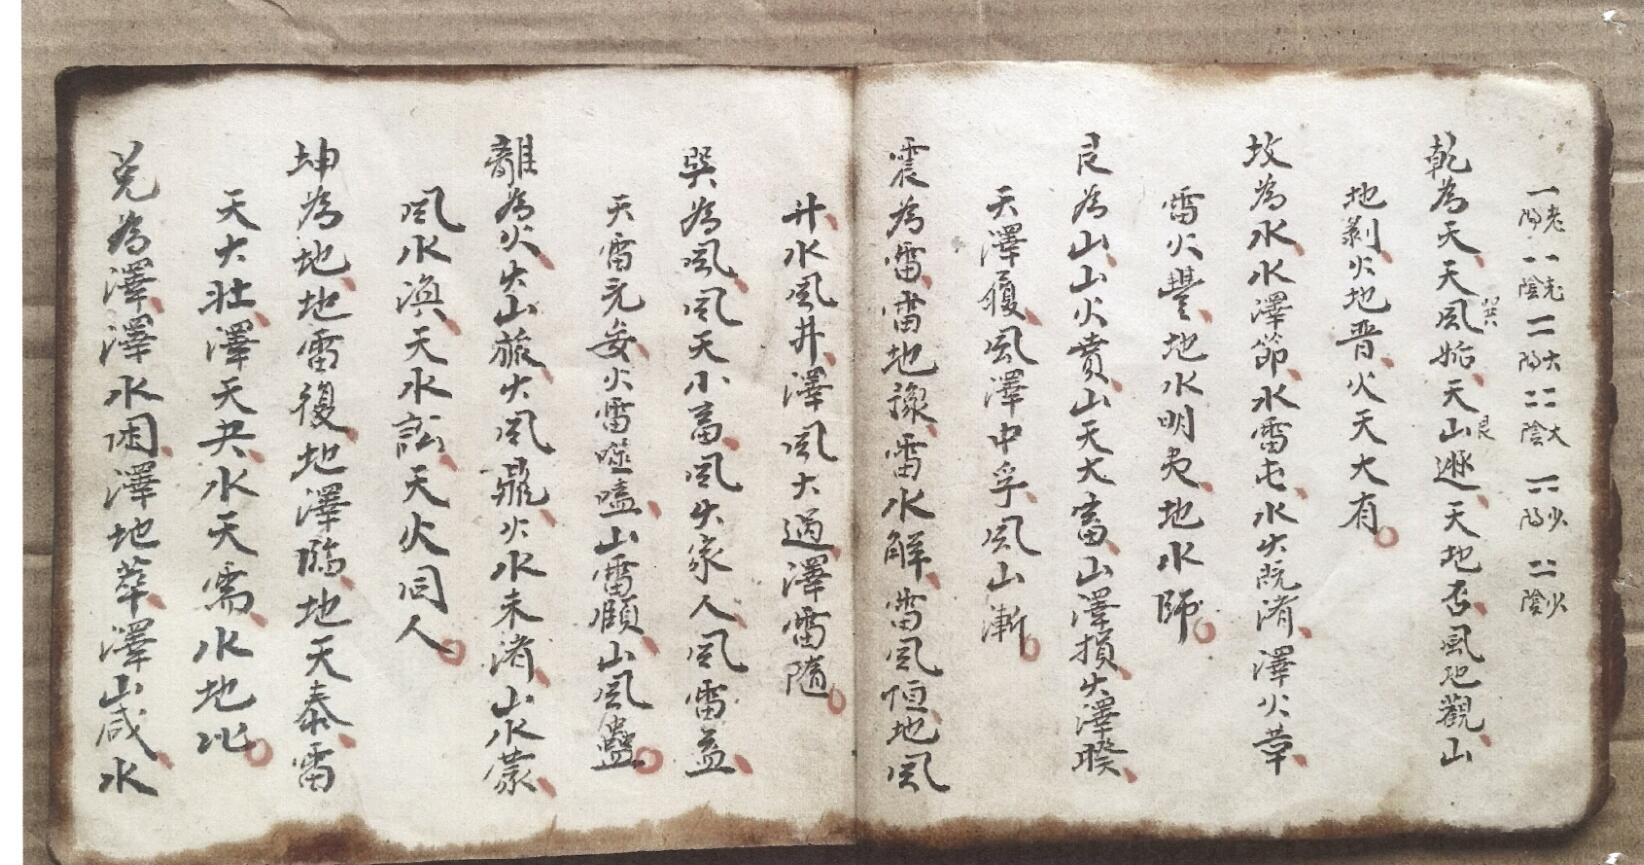 老陽 老陰 太陽 太陰 少陽 少陰
乾為天、天風姤、天山遯、天地否、風地觀、山
巽 艮
地剝、火地晋、火天大有。
坎為水、水澤節、水雷屯、水火既済、澤火革、
雷火豐、地水明夷、地水師。
艮為山、山火賁、山天大畜、山澤損、火澤睽、
天澤履、風澤中孚、風山漸。
震為雷、雷地豫、雷水解、雷風恒、地風
升、水風井、澤風大過、澤雷隨。
巽為風、風天小畜、風火家人、風雷益、
天雷无妄、火雷噬嗑、山雷頤、山風蠱。
離為火、火山旅、火風鼎、火水未済、山水蒙、
風水渙、天水訟、天火同人。
坤為地、地雷復、地澤臨、地天泰、雷
天大壮、澤天夬、水天需、水地比。
兌為澤、澤水困、澤地萃、澤山咸、水